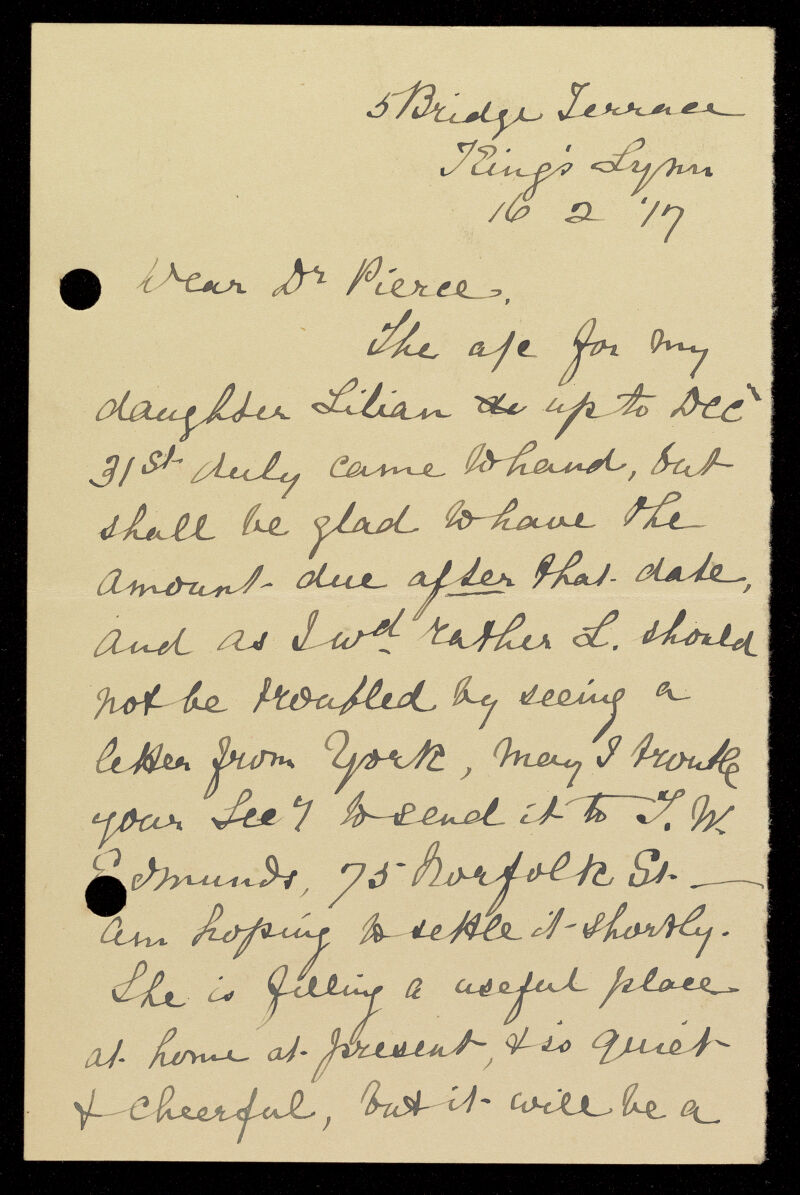 5 Bridge Terrace
King's Lynn
16 2 '17
Dear Dr Pierce,
The a/c for my
daughter Lilian up to Decr
31st duly came to hand, but
shall be glad to have the
amount due after that date,
and as I wd rather L. should
not be troubled by seeing a
letter from York, may I trouble
your Secy to send it to T. W.
Edmunds, 75 Norfolk St. —
am hoping to settle it shortly.
She is filling a useful place
at home at present, & is quiet
& cheerful, but it will be a